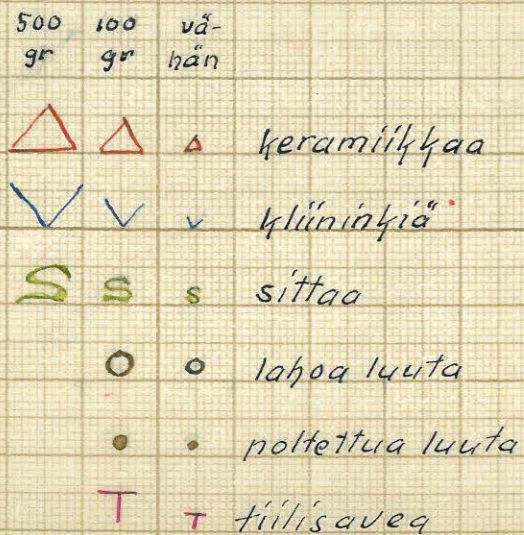 500 100 vä-
gr gr hän
keramiikkaa
kliininkiä
S S s sittaa
lahoa luuta
poltettua luuta
T T tiilisavea